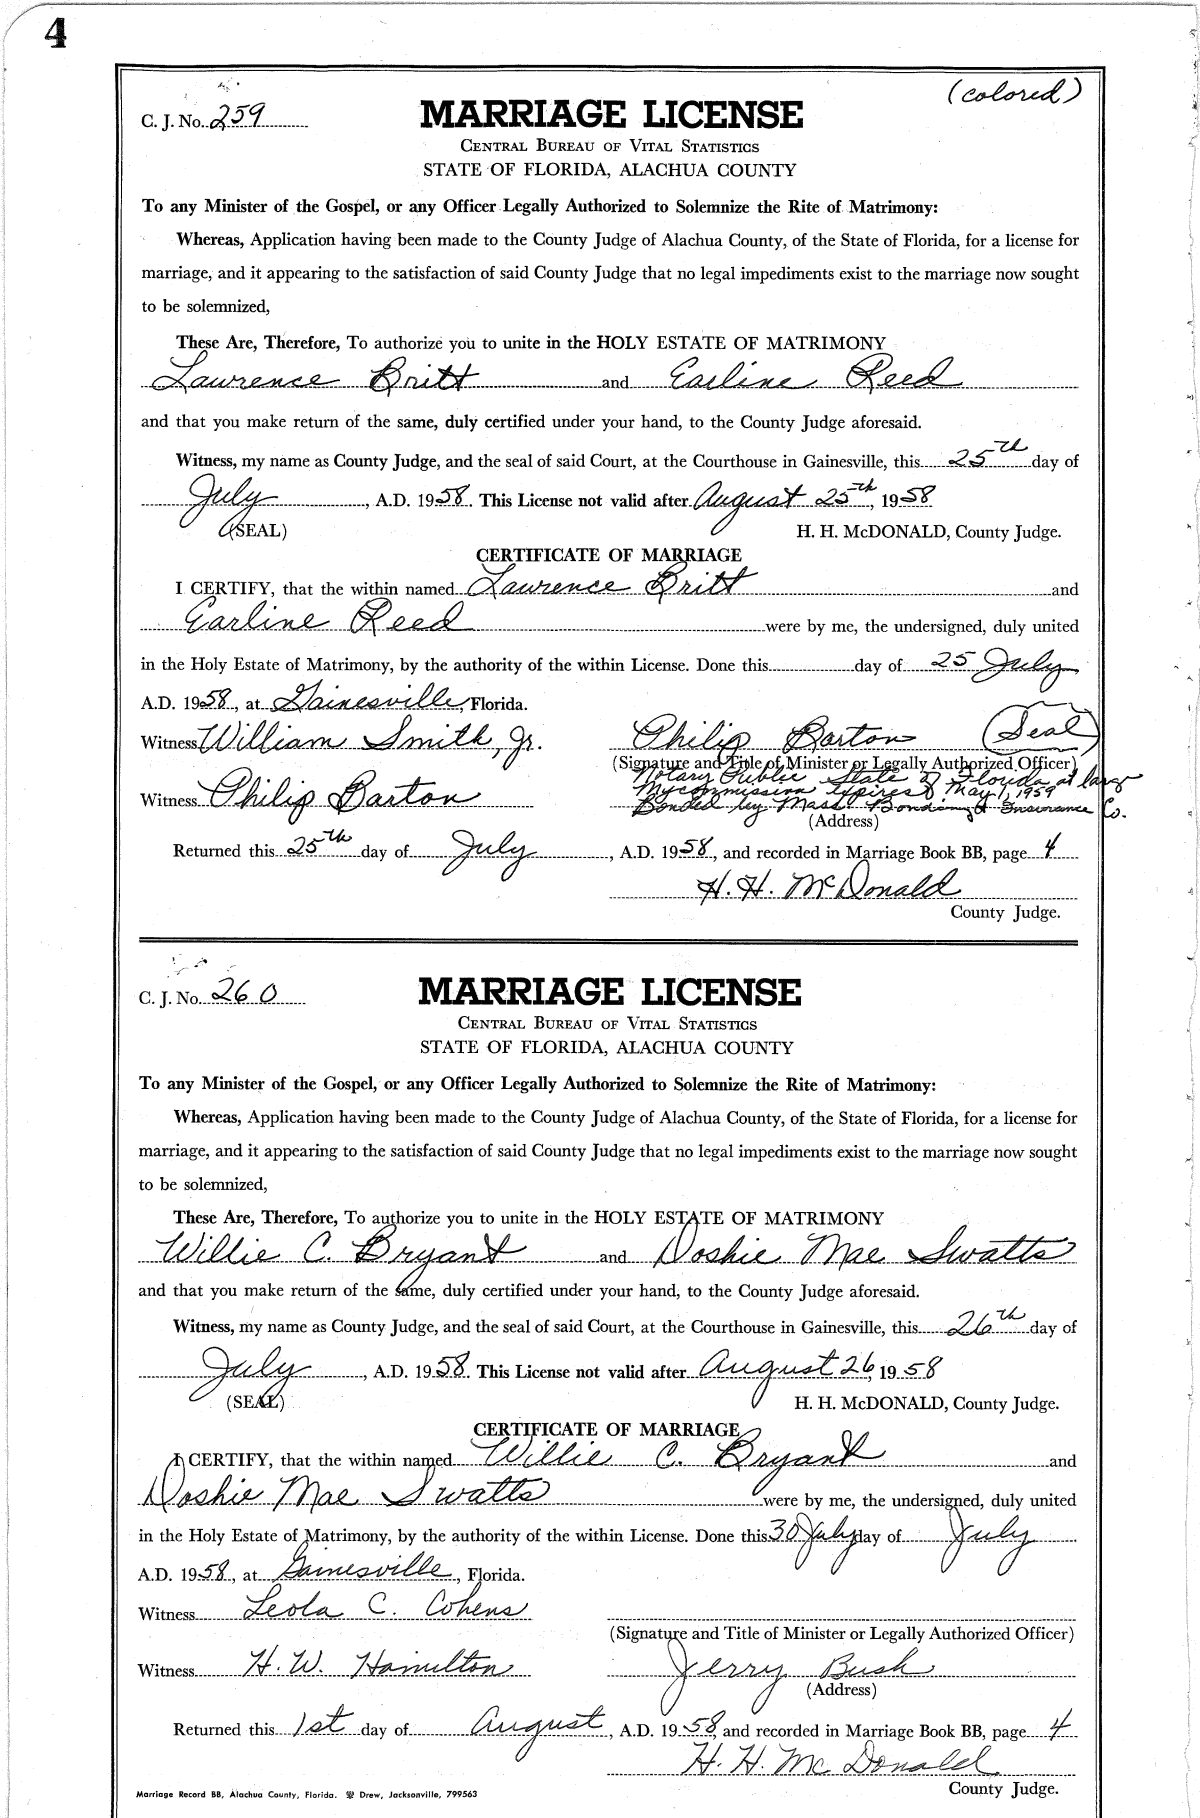 4
(colored)
C. J. No. 259
MARRIAGE LICENSE
CENTRAL BUREAU OF VITAL STATISTICS
STATE OF FLORIDA, ALACHUA COUNTY
To any Minister of the Gospel, or any Officer Legally Authorized to Solemnize the Rite of Matrimony:
Whereas, Application having been made to the County Judge of Alachua County, of the State of Florida, for a license for
marriage, and it appearing to the satisfaction of said County Judge that no legal impediments exist to the marriage now sought
to be solemnized,
These Are, Therefore, To authorize you to unite in the HOLY ESTATE OF MATRIMONY
Lawrence Britt and Earline Reed
and that you make return of the same, duly certified under your hand, to the County Judge aforesaid.
Witness, my name as County Judge, and the seal of said Court, at the Courthouse in Gainesville, this 25th day of
July, A.D. 1958. This License not valid after August 25th, 1958
(SEAL) H. H. McDONALD, County Judge.
CERTIFICATE OF MARRIAGE
I CERTIFY, that the within named Lawrence Britt and
Earline Reed were by me, the undersigned, duly united
in the Holy Estate of Matrimony, by the authority of the within License. Done this day of 25 July
A.D. 1958, at Gainesville, Florida.
Witness William Smith, Jr. Philip Barton (Seal)
(Signature and Title of Minister or Legally Authorized Officer)
Notary Public State of Florida at large
My commission expires May 1, 1959
Witness Philip Barton Bonded by Mass Bonding & Insurance Co.
(Address)
Returned this 25th day of July, A.D. 1958, and recorded in Marriage Book BB, page 4
H. H. McDonald
County Judge.
C. J. No. 260
MARRIAGE LICENSE
CENTRAL BUREAU OF VITAL STATISTICS
STATE OF FLORIDA, ALACHUA COUNTY
To any Minister of the Gospel, or any Officer Legally Authorized to Solemnize the Rite of Matrimony:
Whereas, Application having been made to the County Judge of Alachua County, of the State of Florida, for a license for
marriage, and it appearing to the satisfaction of said County Judge that no legal impediments exist to the marriage now sought
to be solemnized,
These Are, Therefore, To authorize you to unite in the HOLY ESTATE OF MATRIMONY
Willie C. Bryant and Doshie Mae Swatts
and that you make return of the same, duly certified under your hand, to the County Judge aforesaid.
Witness, my name as County Judge, and the seal of said Court, at the Courthouse in Gainesville, this 26th day of
July, A.D. 1958. This License not valid after August 26, 1958
(SEAL) H. H. McDONALD, County Judge.
CERTIFICATE OF MARRIAGE
I CERTIFY, that the within named Willie C. Bryant and
Doshie Mae Swatts were by me, the undersigned, duly united
in the Holy Estate of Matrimony, by the authority of the within License. Done this 30 July day of July
A.D. 1958, at Gainesville, Florida.
Witness Leola C. Cohens
(Signature and Title of Minister or Legally Authorized Officer)
Witness H. W. Hamilton Jerry Bush
(Address)
Returned this 1st day of August, A.D. 1958, and recorded in Marriage Book BB, page 4
H. H. McDonald
County Judge.
Marriage Record BB, Alachua County, Florida. Drew, Jacksonville, 799563